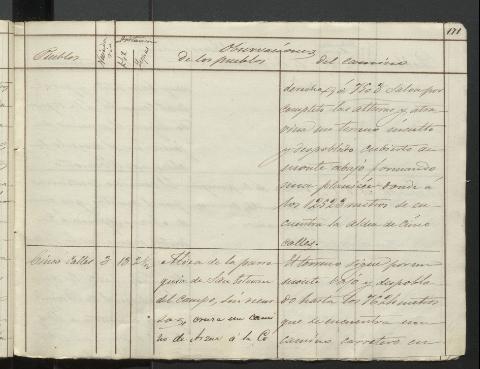 171
Pueblos
Observaciones
de los pueblos
del camino
derecha, y á 7603 salva por
completo las alturas y atra-
viesa un terreno inculto
y despoblado cubierto de
monte abajo, formando
una planicie donde á
los 12523 metros se en-
cuentra la aldea de Cinco
calles.
Cinco calles 3 13 2½
Aldea de la parro
quia de
del campo, sin recur
sos, cruza un cami
no de á la Co
El terreno sigue por un
monte bajo y despobla
do hasta los metros
que se encuentra un
camino carretero en